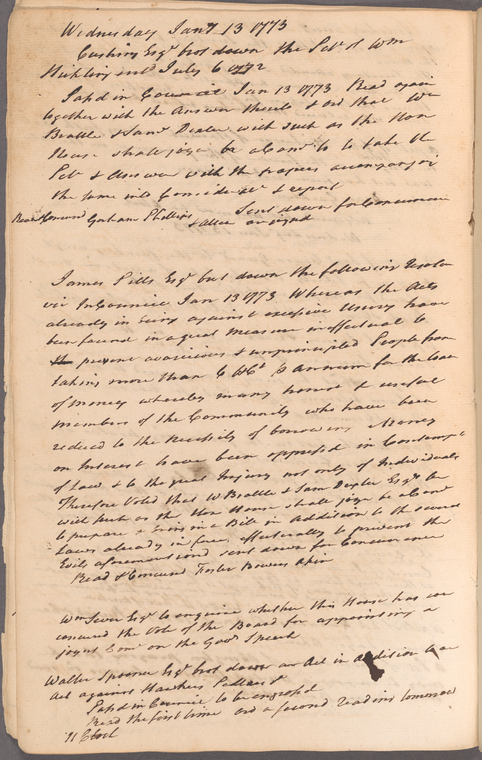 Wednesday Jany 13 1773
Cushing Esqr brot down the Petn of Wm
Stickling ent July 6 1772
Passd in Council Jan 13 1773 Read again
together with the Answer thereto & ord that Wm
Brattle & Saml Dexter with such as the Hon
House shall joyn be a Comee to take the
Petn & Answer with the papers accompanying
the same into Consideratn & report
Sent down for Concurrence
Read & Concurd Gorham Phillips
& are assignd
James Pitts Esqr brot down the following Resolve
viz In Council Jan 13 1773 Whereas the Acts
already in being against excessive Usury have
been found in a great Measure ineffectual to
prevent avaricious & unprincipled People from
taking more than 6 Ct P Annum for the loan
of Money whereby many honest & useful
members of the Community who have been
reduced to the Necessity of borrowing Money
on Interest have been oppressed in Contempt
of Law & to the great Injury not only of Individuals
Therefore Voted that W Brattle & Sam Dexter Esqrs be
with such as the Hon House shall joyn be a Comee
to prepare & bring in a Bill in Addition to the several
Laws already in force effectually to prevent the
Evils aforementiond sent down for Concurrence
Read & Concurd Foster Bowers
Wm Sever Esqr to enquire whether this House has con
concurred the Vote of the Board for appointing a
joynt Come on the Govs Speech
Walter Spooner Esqr brot down an Act in Addition to an
Act against Hawkers Pedlars &
Passd in Council to be engrossd
Read the first time ord a second reading tomorrow
11 Clock